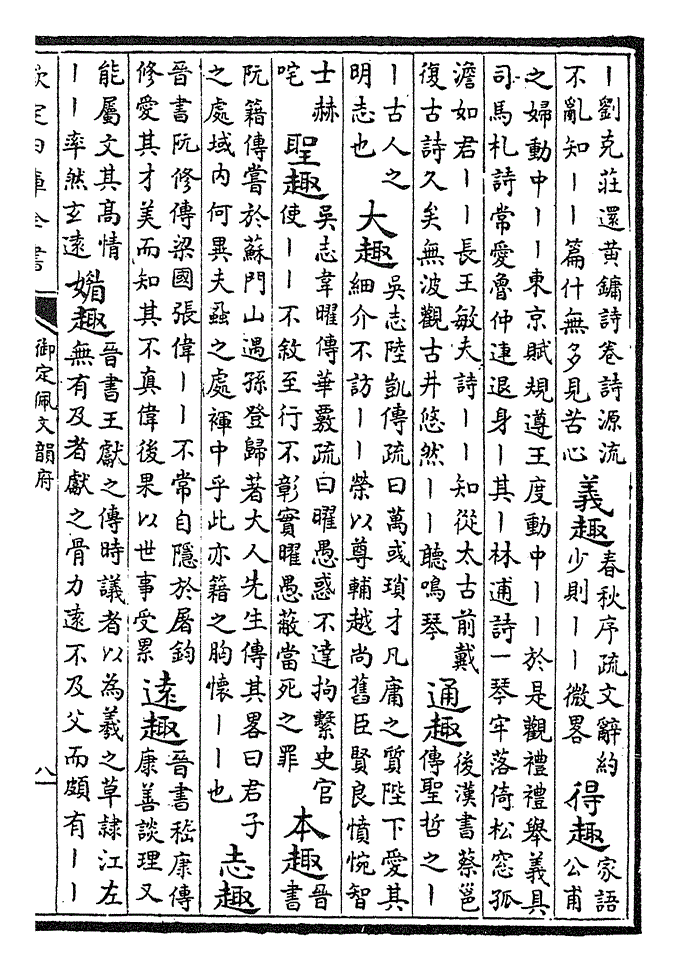 ｜劉克莊還黄鏞詩巻詩源流
不亂知｜｜篇什無多見苦心
義趣
春秋序疏文辭約
少則｜｜微畧
得趣
家語
公甫
之婦動中｜｜東京賦規遵王度動中｜｜於是觀禮禮舉義具
司馬札詩常愛魯仲連退身｜其｜林逋詩一琴牢落倚松窓孤
澹如君｜｜長王敏夫詩｜｜知從太古前戴
復古詩久矣無波觀古井悠然｜｜聽鳴琴
通趣
後漢書蔡邕
傳聖哲之｜
｜古人之
明志也
大趣
吳志陸凱傳疏曰萬彧瑣才凡庸之質陛下愛其
細介不訪｜｜榮以尊輔越尚舊臣賢良憤惋智
士赫
咤
聖趣
吳志韋曜傳華覈疏曰曜愚惑不達拘繫史官
使｜｜不敘至行不彰實曜愚蔽當死之罪
本趣
晉
書
阮籍傳嘗於蘇門山遇孫登歸著大人先生傳其畧曰君子
之處域内何異夫蝨之處褌中乎此亦籍之胸懐｜｜也
志趣
晉書阮修傳梁國張偉｜｜不常自隱於屠鈎
修愛其才美而知其不真偉後果以世事受累
逺趣
晉書嵇康傳
康善談理又
能屬文其髙情
｜｜率然玄逺
媚趣
晉書王獻之傳時議者以為羲之草隸江左
無有及者獻之骨力逺不及父而頗有｜｜
欽定四庫全書
御定佩文韻府
八